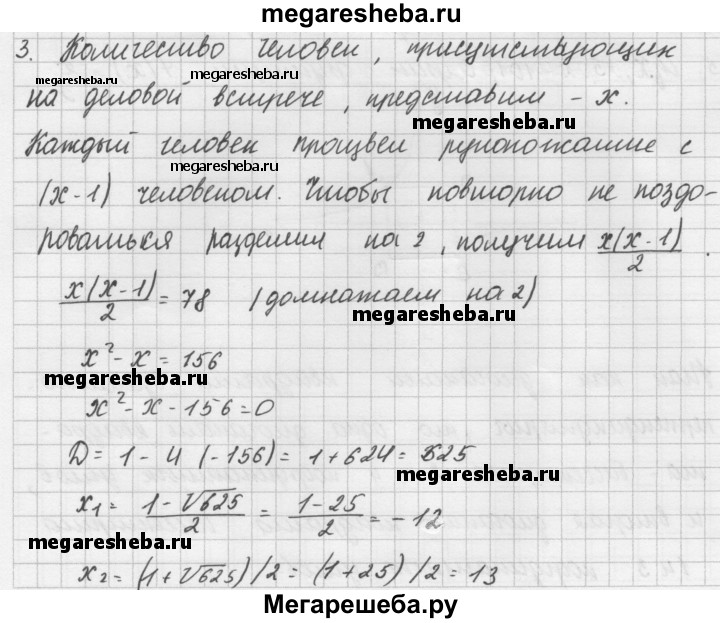 megaresheba.ru
3. Количество человек, присутствующих
megaresheba.ru megaresheba.ru
на деловой встрече, представим - x.
megaresheba.ru
Каждый человек произвел рукопожатие с
megaresheba.ru
(x-1) человеком. Чтобы повторно не поздо-
роваться разделим на 2, получим x(x-1)/2.
x(x-1)/2 = 78 (домножаем на 2)
megaresheba.ru
x² - x = 156
megaresheba.ru
x² - x - 156 = 0
D = 1 - 4 (-156) = 1 + 624 = 625
megaresheba.ru
x₁ = (1-√625)/2 = (1-25)/2 = -12
megaresheba.ru
x₂ = (1+√625)/2 = (1+25)/2 = 13
Мегарешеба.ру